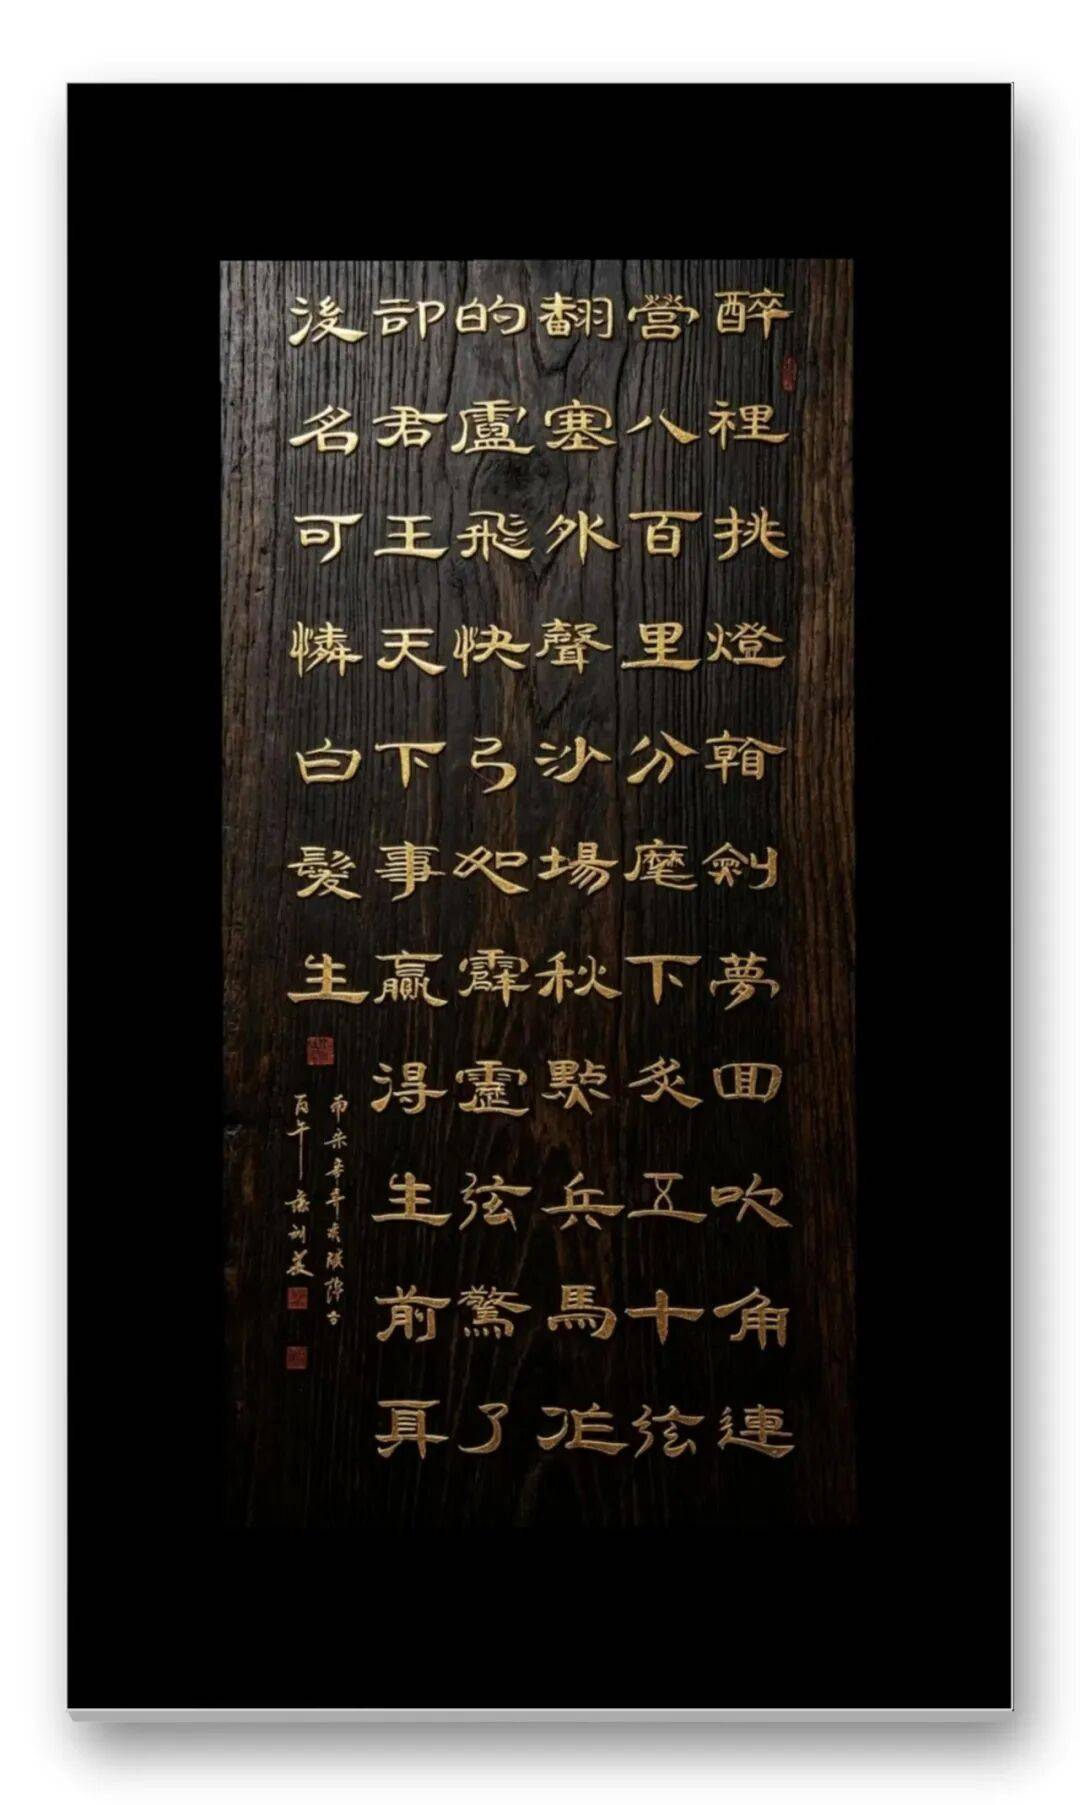 醉裡挑燈看劍夢回吹角連
營八百里分麾下炙五十絃
翻塞外聲沙場秋點兵馬作
的盧飛快弓如霹靂弦驚了
卻君王天下事贏得生前身
後名可憐白髮生
南宋辛弃疾破陣子
丙午